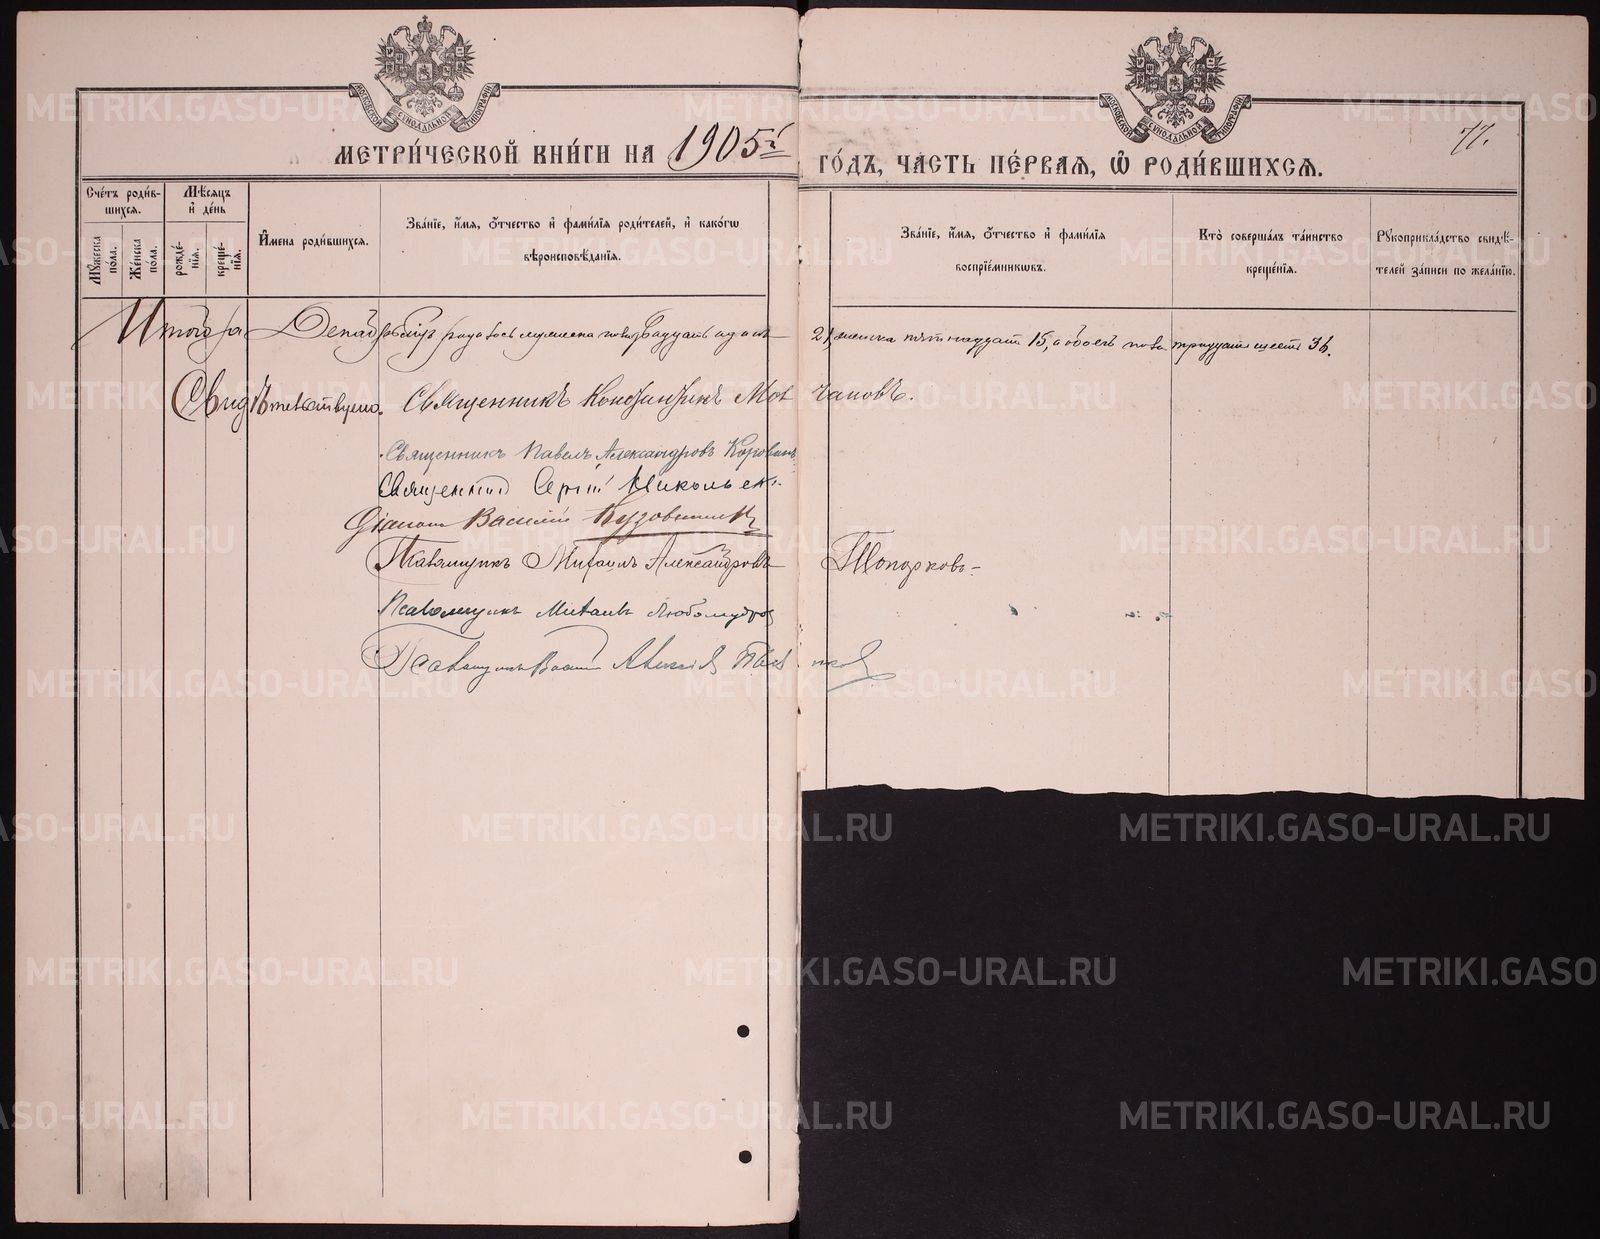 МОСКОВСКОЙ СѴНОДАЛЬНОЙ ТИПОГРАФІИ
МОСКОВСКОЙ СѴНОДАЛЬНОЙ ТИПОГРАФІИ
МЕТРИ́ЧЕСКОЙ КНИ́ГИ НА 1905й ГО́ДЪ, ЧА́СТЬ ПЕ́РВАЯ, Ѽ РОДИ́ВШИХСѦ.
77.
Сче́тъ роди́вшихся.
Му́жеска по́ла.
Же́нска по́ла.
Мѣ́сяцъ и де́нь
рожде́нія.
креще́нія.
И́мена роди́вшихся.
Зва́ніе, и́мя, о́тчество и фами́лія роди́телей, и како́гѡ вѣроисповѣ́данія.
Зва́ніе, и́мя, о́тчество и фами́лія воспріе́мниковъ.
Кто̀ соверша́лъ та́инство креще́нія.
Рꙋкоприкла́дство свидѣ́телей за́писи по жела́нію.
Итого за Декабрь родилось мужеска пола двадцать одинъ 21, женска пятнадцать 15, а обоего пола тридцать шесть 36.
Свидѣтельствуемъ. Священникъ Константинъ Молчановъ.
Священникъ Павелъ Александровъ Коровинъ
Священник Сергій Никольскій
Діаконъ Василій
Псаломщикъ Михаилъ Александровъ Топорковъ
Псаломщикъ Михаилъ Любомудровъ
Псаломщикъ
METRIKI.GASO-URAL.RU